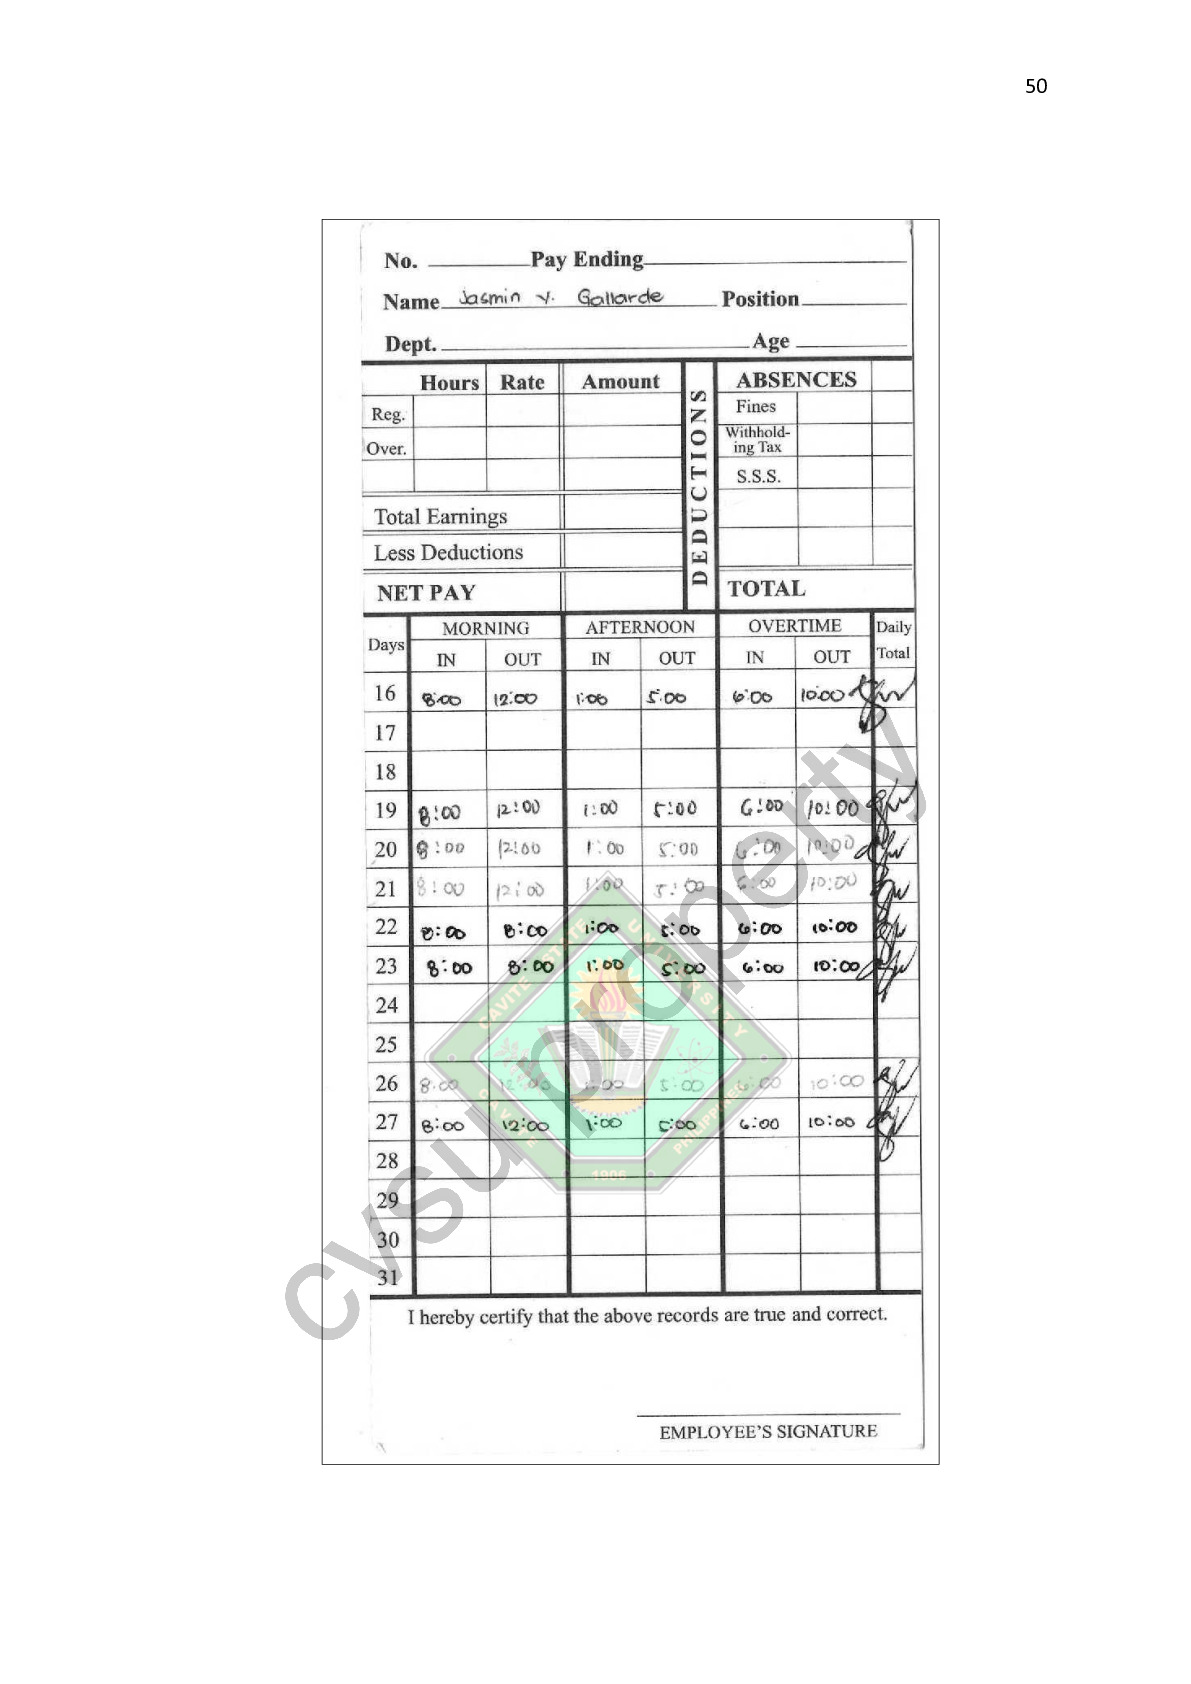 50
No. Pay Ending
Name Jasmin V. Gallarde Position
Dept. Age
Hours Rate Amount DEDUCTIONS ABSENCES
Reg. Fines
Over. Withhold-
ing Tax
S.S.S.
Total Earnings
Less Deductions
NET PAY TOTAL
Days MORNING AFTERNOON OVERTIME Daily
IN OUT IN OUT IN OUT Total
16 8:00 12:00 1:00 5:00 6:00 10:00
17
18
19 8:00 12:00 1:00 5:00 6:00 10:00
20 8:00 12:00 1:00 5:00 6:00 10:00
21 8:00 12:00 1:00 5:00 6:00 10:00
22 8:00 8:00 1:00 5:00 6:00 10:00
23 8:00 8:00 1:00 5:00 6:00 10:00
24
25
26 8:00 12:00 1:00 5:00 6:00 10:00
27 8:00 12:00 1:00 5:00 6:00 10:00
28
29
30
31
I hereby certify that the above records are true and correct.
EMPLOYEE'S SIGNATURE
cvsu property
CAVITE STATE UNIVERSITY
CAVITE PHILIPPINES
1906